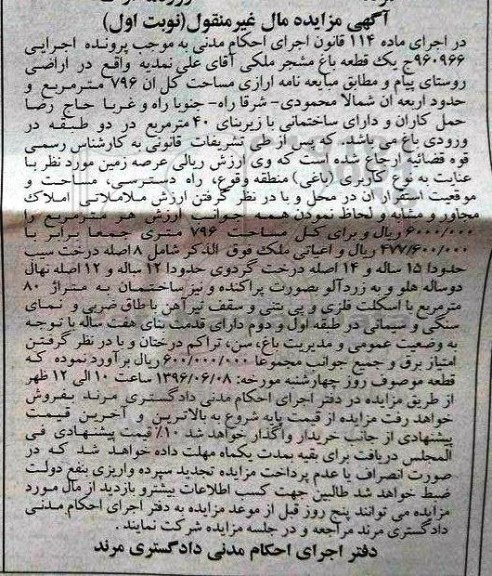 آگهی مزایده مال غیرمنقول(نوبت اول)
در اجرای ماده ۱۱۴ قانون اجرای احکام مدنی به موجب پرونده اجرایی
۹۶۰۹۶۶ج یک قطعه باغ مشجر ملکی آقای علی نمدیه واقع در اراضی
روستای پیام و مطابق مبایعه نامه ارازی مساحت کل ان ۷۹۶ مترمربع و
حدود اربعه ان شمالا محمودی- شرقا راه- جنوبا راه و غربا حاج رضا
حمل کاران و دارای ساختمانی با زیربنای ۴۰ مترمربع در دو طبقه در
ورودی باغ می باشد. که پس از طی تشریفات قانونی به کارشناس رسمی
قوه قضائیه ارجاع شده است که وی ارزش ریالی عرصه زمین مورد نظر با
عنایت به نوع کاربری (باغی) منطقه وقوع، راه دسترسی، مساحت و
موقعیت استقرار آن در محل و با در نظر گرفتن ارزش ملاملاتی املاک
مجاور و مشابه و لحاظ نمودن همه جوانب ارزش هر مترمربع را
۶۰۰۰/۰۰۰ ریال و برای کل مساحت ۷۹۶ متری جمعا برابر با
۴۷۷/۶۰۰/۰۰۰ ریال و اعیانی ملک فوق الذکر شامل ۸ اصله درخت سیب
حدودا ۱۵ ساله و ۱۴ اصله درخت گردوی حدودا ۱۲ ساله و ۱۲ اصله نهال
دوساله هلو و به زردآلو بصورت پراکنده و نیز ساختمان به متراژ ۸۰
مترمربع با اسکلت فلزی و پی بتنی و سقف تیرآهن با طاق ضربی و نمای
سنگی و سیمانی در طبقه اول و دوم دارای قدمت بنای هفت ساله با توجه
به وضعیت عمومی و مدیریت باغ، سن، تراکم درختان و با در نظر گرفتن
امتیاز برق و جمیع جوانب مجموعا ۶۰۰/۰۰۰/۰۰۰ ریال برآورد نموده که
قطعه موصوف روز چهارشنبه مورخه: ۱۳۹۶/۰۶/۰۸ ساعت ۱۰ الی ۱۲ ظهر
از طریق مزایده در دفتر اجرای احکام مدنی دادگستری مرند بفروش
خواهد رفت مزایده از قیمت پایه شروع به بالاترین و آخرین قیمت
پیشنهادی از جانب خریدار واگذار خواهد شد ۱۰٪ قیمت پیشنهادی فی
المجلس دریافت برای بقیه بمدت یکماه مهلت داده خواهد شد که در
صورت انصراف یا عدم پرداخت مزایده تجدید سپرده واریزی بنفع دولت
ضبط خواهد شد طالبین جهت کسب اطلاعات بیشترو بازدید از مال مورد
مزایده می توانند پنج روز قبل از موعد مزایده به دفتر اجرای احکام مدنی
دادگستری مرند مراجعه و در جلسه مزایده شرکت نمایند .
دفتر اجرای احکام مدنی دادگستری مرند